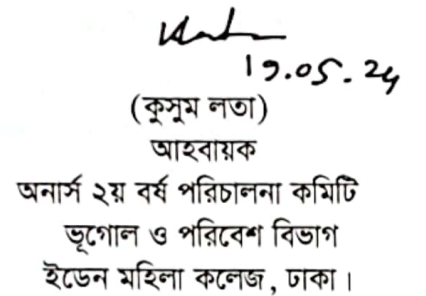 19.05.24
(কুসুম লতা)
আহবায়ক
অনার্স ২য় বর্ষ পরিচালনা কমিটি
ভূগোল ও পরিবেশ বিভাগ
ইডেন মহিলা কলেজ, ঢাকা।